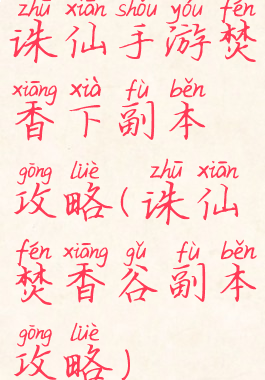 zhū xiān shǒu yóu fén
诛仙手游焚
xiāng xià fù běn
香下副本
gōng lüè zhū xiān
攻略(诛仙
fén xiāng gǔ fù běn
焚香谷副本
gōng lüè
攻略)